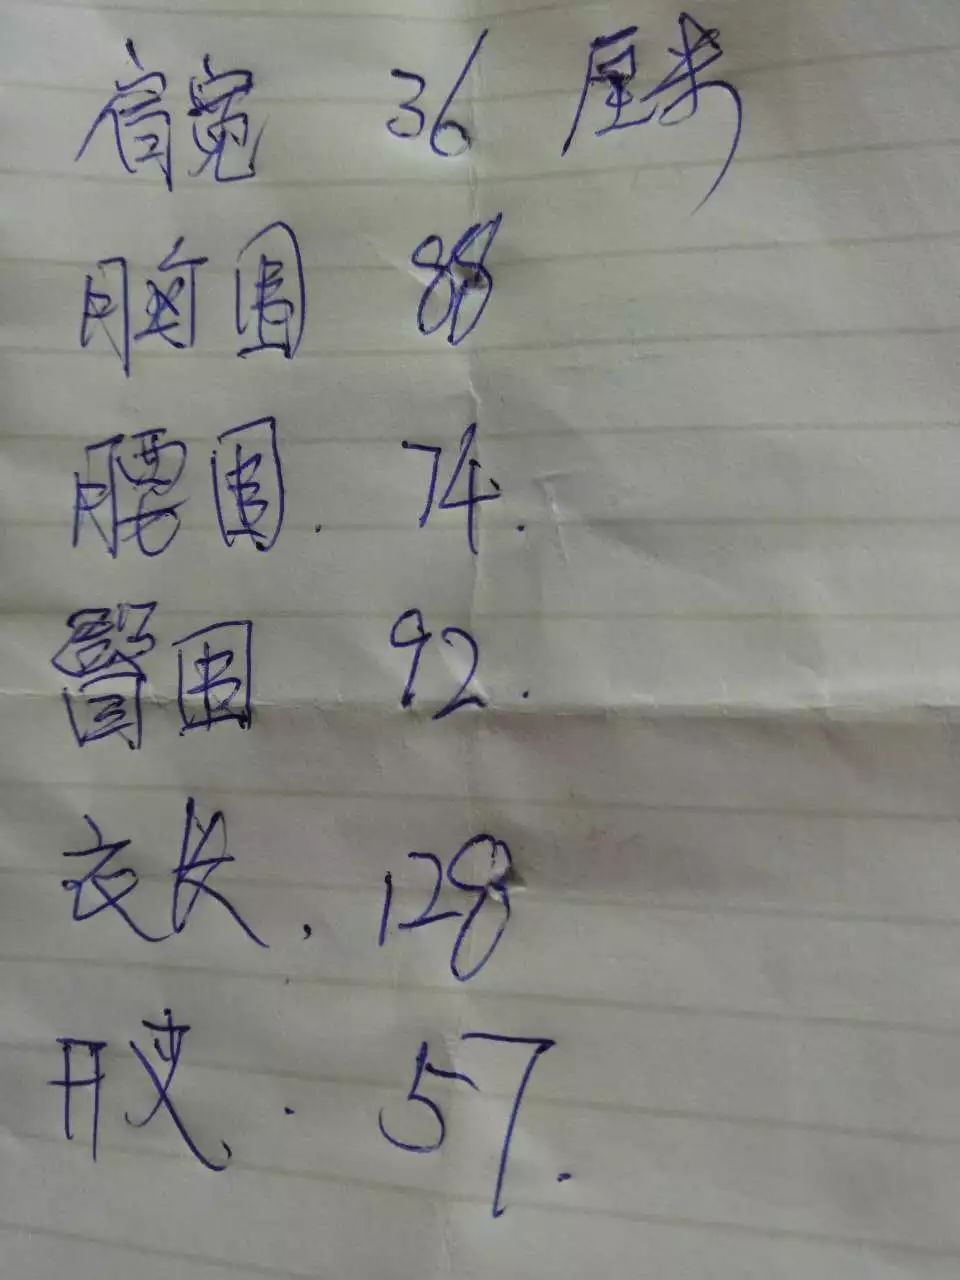 肩宽 36 厘米
胸围 88
腰围. 74.
臀围 92.
衣长. 128
开叉. 57.